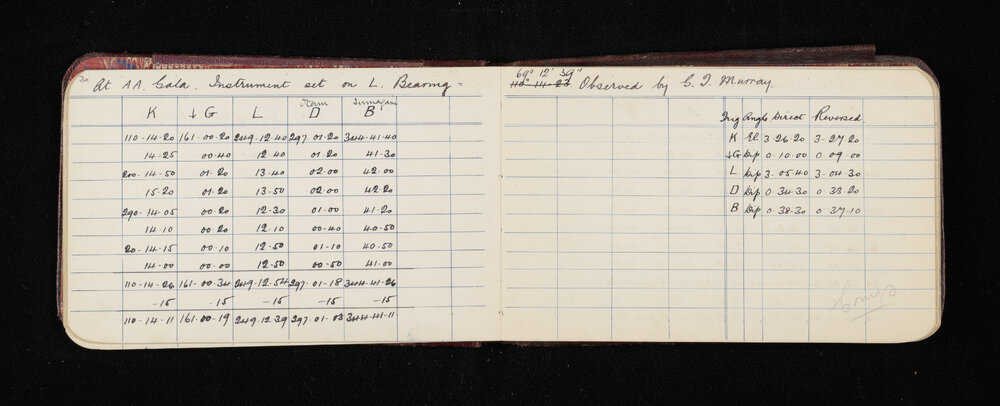 30
At AA. Gala. Instrument set on L. Bearing =
K ↓G L D B
110-14-20 161-00-20 249-12-40 297-01-20 344-41-40
14-25 00-40 12-40 01-20 41-30
200-14-50 01-20 13-40 02-00 42-00
15-20 01-20 13-50 02-00 42-20
290-14-05 00-20 12-30 01-00 41-20
14-10 00-20 12-10 00-40 40-50
20-14-15 00-10 12-50 01-10 40-50
14-00 00-00 12-50 00-50 41-00
110-14-26 161-00-34 249-12-54 297-01-18 344-41-26
-15 -15 -15 -15 -15
110-14-11 161-00-19 249-12-39 297-01-03 344-41-11
69° 12' 39"
110°-14-23 Observed by G. I. Murray.
Trig Angle Direct Reversed
K El 3-26-20 3-27-20
↓G Dip 0-10-00 0-09-00
L Dip 3-05-40 3-04-30
D Dip 0-34-30 0-33-20
B Dip 0-38-30 0-37-10